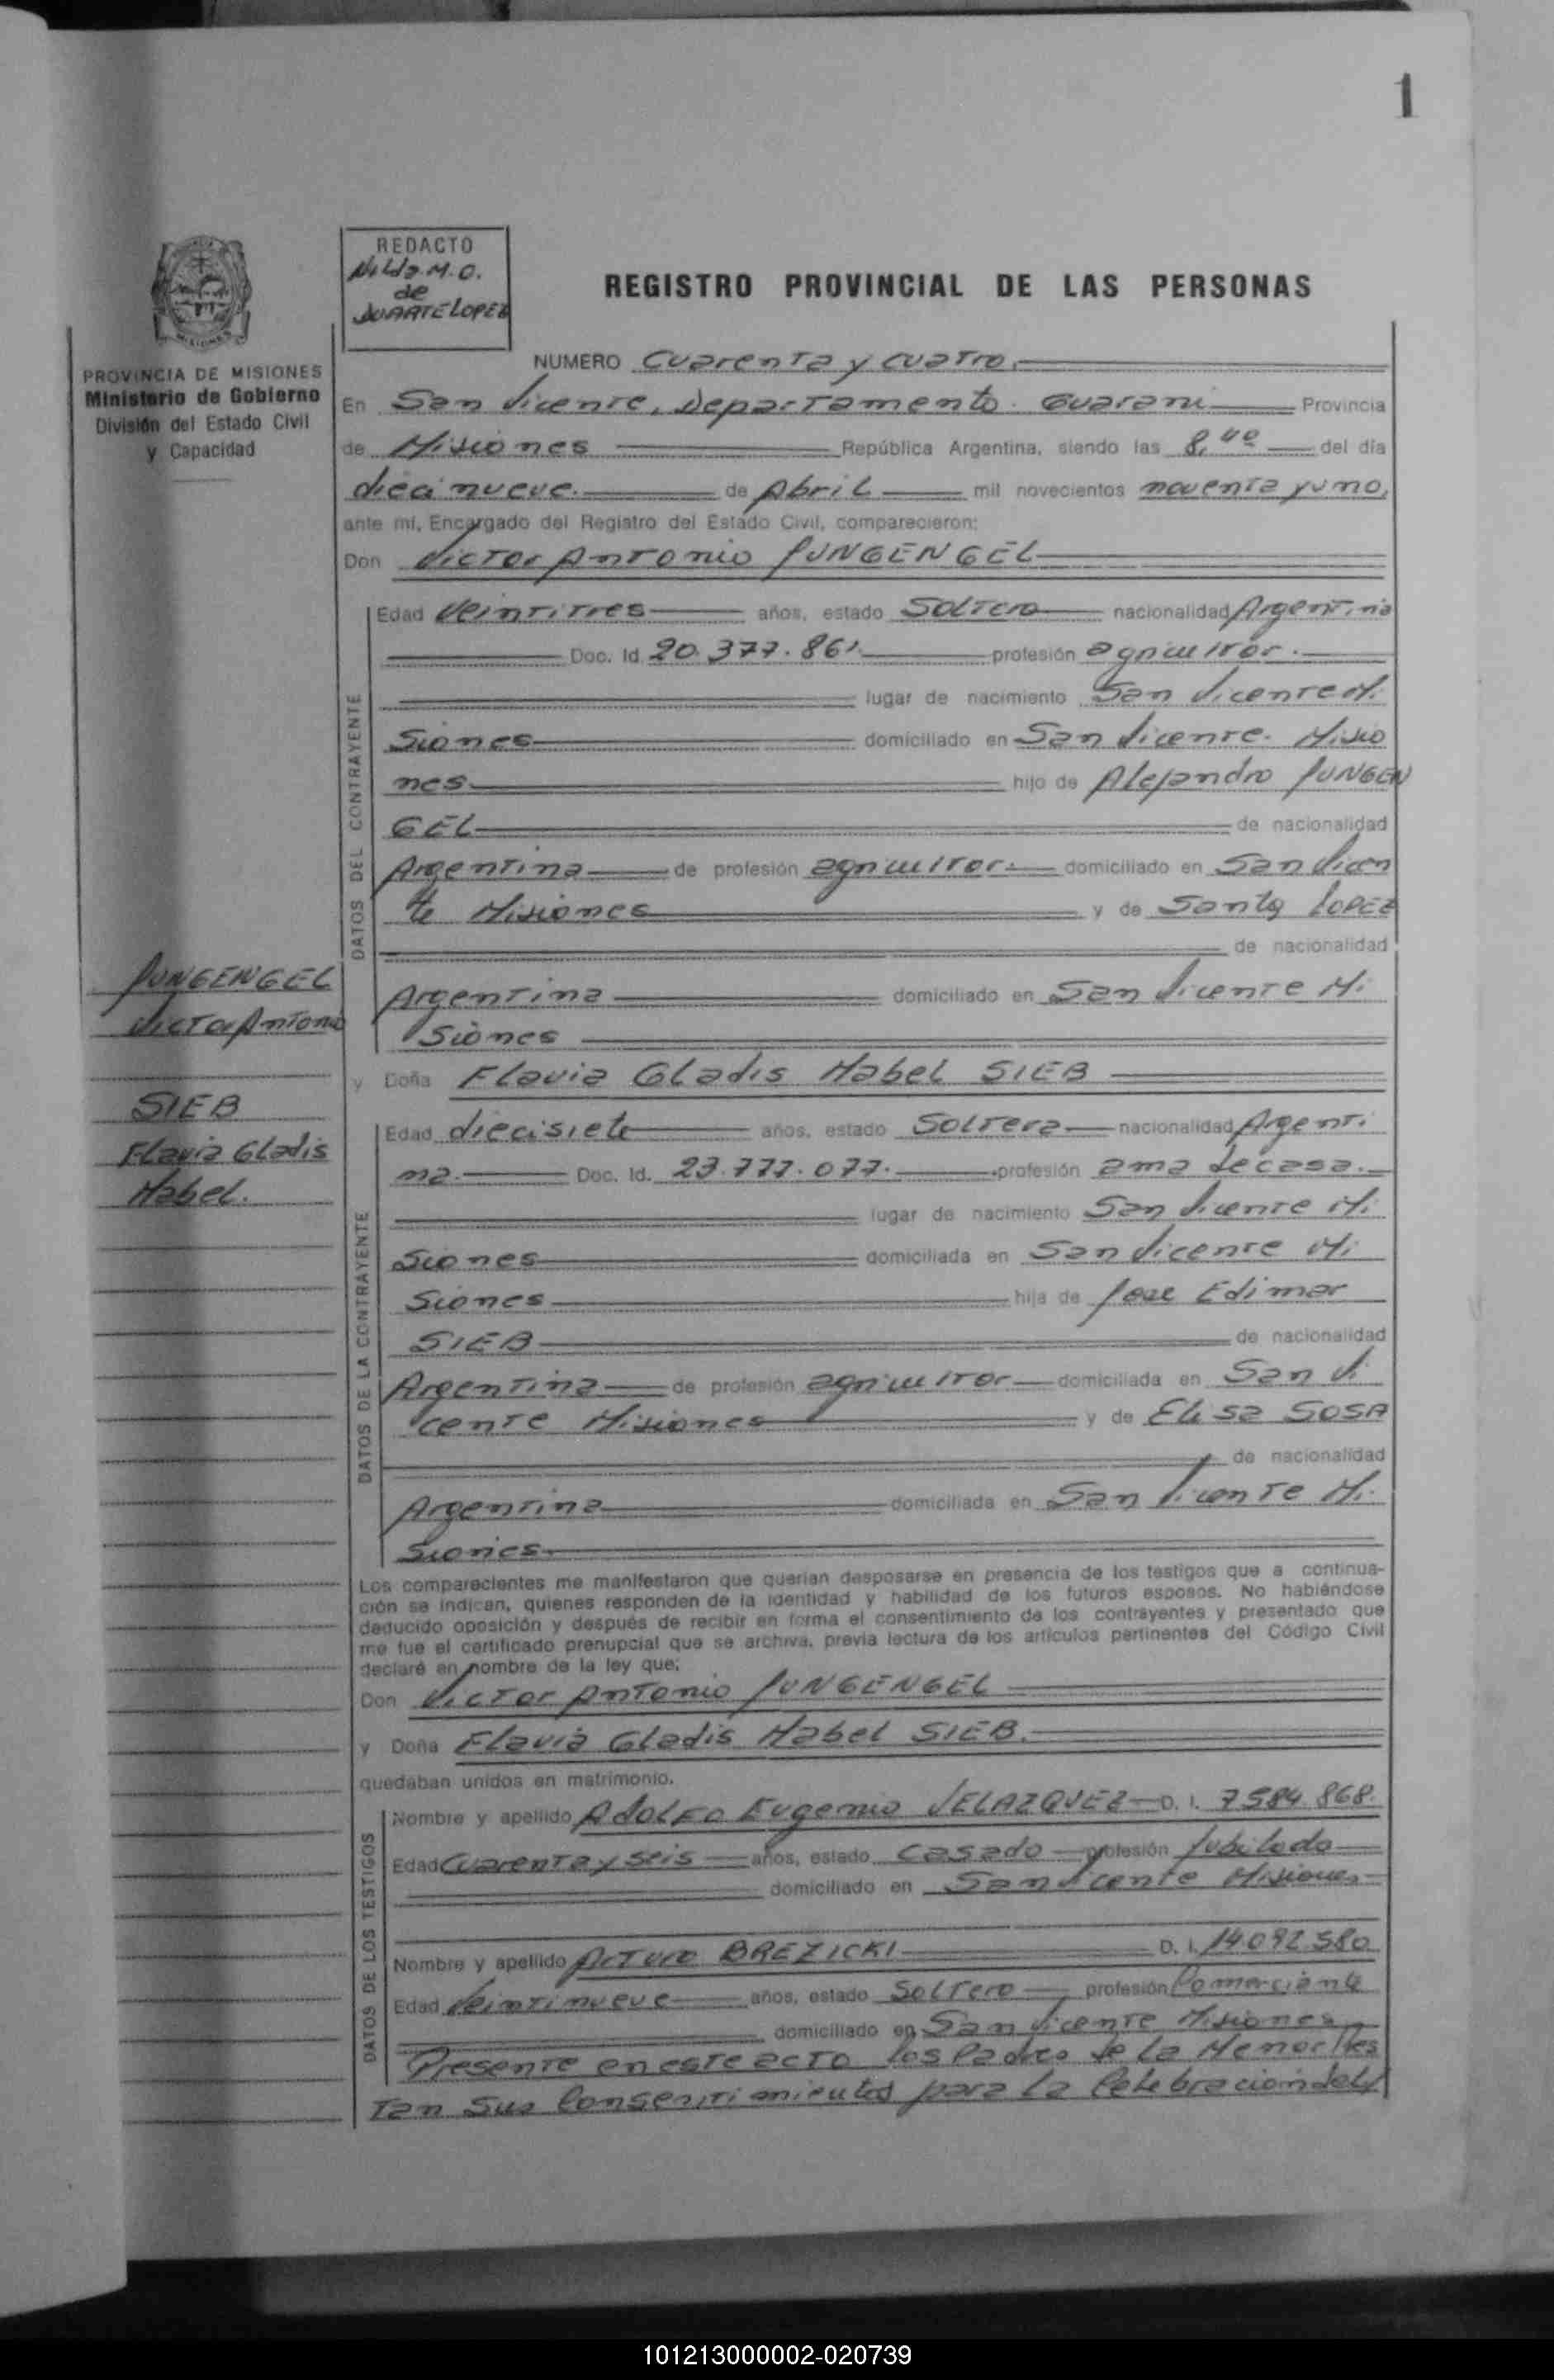 1
REDACTO
Nilda M.O.
de
DUARTE LOPEZ
REGISTRO PROVINCIAL DE LAS PERSONAS
PROVINCIA DE MISIONES
Ministerio de Gobierno
División del Estado Civil
y Capacidad
NUMERO Cuarenta y cuatro.
En San Vicente, Departamento. Guarani Provincia
de Misiones República Argentina, siendo las 8,40 del día
diecinueve. de Abril mil novecientos noventa y uno,
ante mí, Encargado del Registro del Estado Civil, comparecieron:
Don Victor Antonio JUNGENGEL
DATOS DEL CONTRAYENTE
Edad Veintitres años, estado Soltero nacionalidad Argentina
Doc. Id 20.377.861. profesión agricultor.
lugar de nacimiento San Vicente Mi
siones domiciliado en San Vicente. Misio
nes hijo de Alejandro JUNGEN
GEL de nacionalidad
Argentina de profesión agricultor. domiciliado en San Vicen
te Misiones y de Santa LOPEZ
de nacionalidad
Argentina domiciliado en San Vicente Mi
siones
JUNGENGEL
Victor Antonio
y Doña Flavia Gladis Mabel SIEB
SIEB
Flavia Gladis
Mabel.
DATOS DE LA CONTRAYENTE
Edad diecisiete años, estado Soltera nacionalidad Argenti
na. Doc. Id. 23.777.077. profesión ama de casa.
lugar de nacimiento San Vicente Mi
siones domiciliada en San Vicente Mi
siones hija de Jose Edimar
SIEB de nacionalidad
Argentina de profesión agricultor domiciliada en San Vi
cente Misiones y de Elisa SOSA
de nacionalidad
Argentina domiciliada en San Vicente Mi
siones
Los comparecientes me manifestaron que querían desposarse en presencia de los testigos que a continua-
ción se indican, quienes responden de la identidad y habilidad de los futuros esposos. No habiéndose
deducido oposición y después de recibir en forma el consentimiento de los contrayentes y presentado que
me fue el certificado prenupcial que se archiva, previa lectura de los artículos pertinentes del Código Civil
declaré en nombre de la ley que:
Don Victor Antonio JUNGENGEL
y Doña Flavia Gladis Mabel SIEB.
quedaban unidos en matrimonio.
DATOS DE LOS TESTIGOS
Nombre y apellido Adolfo Eugenio VELAZQUEZ D. I. 7584.868.
Edad Cuarenta y seis años, estado Casado profesión Jubilado
domiciliado en San Vicente Misiones
Nombre y apellido Arturo BREZICKI D. I. 14.092.580
Edad Veintinueve años, estado Soltero profesión Comerciante
domiciliado en San Vicente Misiones
Presente en este acto los Padres de la Menor Pres
tan Sus Consentimientos para la Celebracion del
101213000002-020739